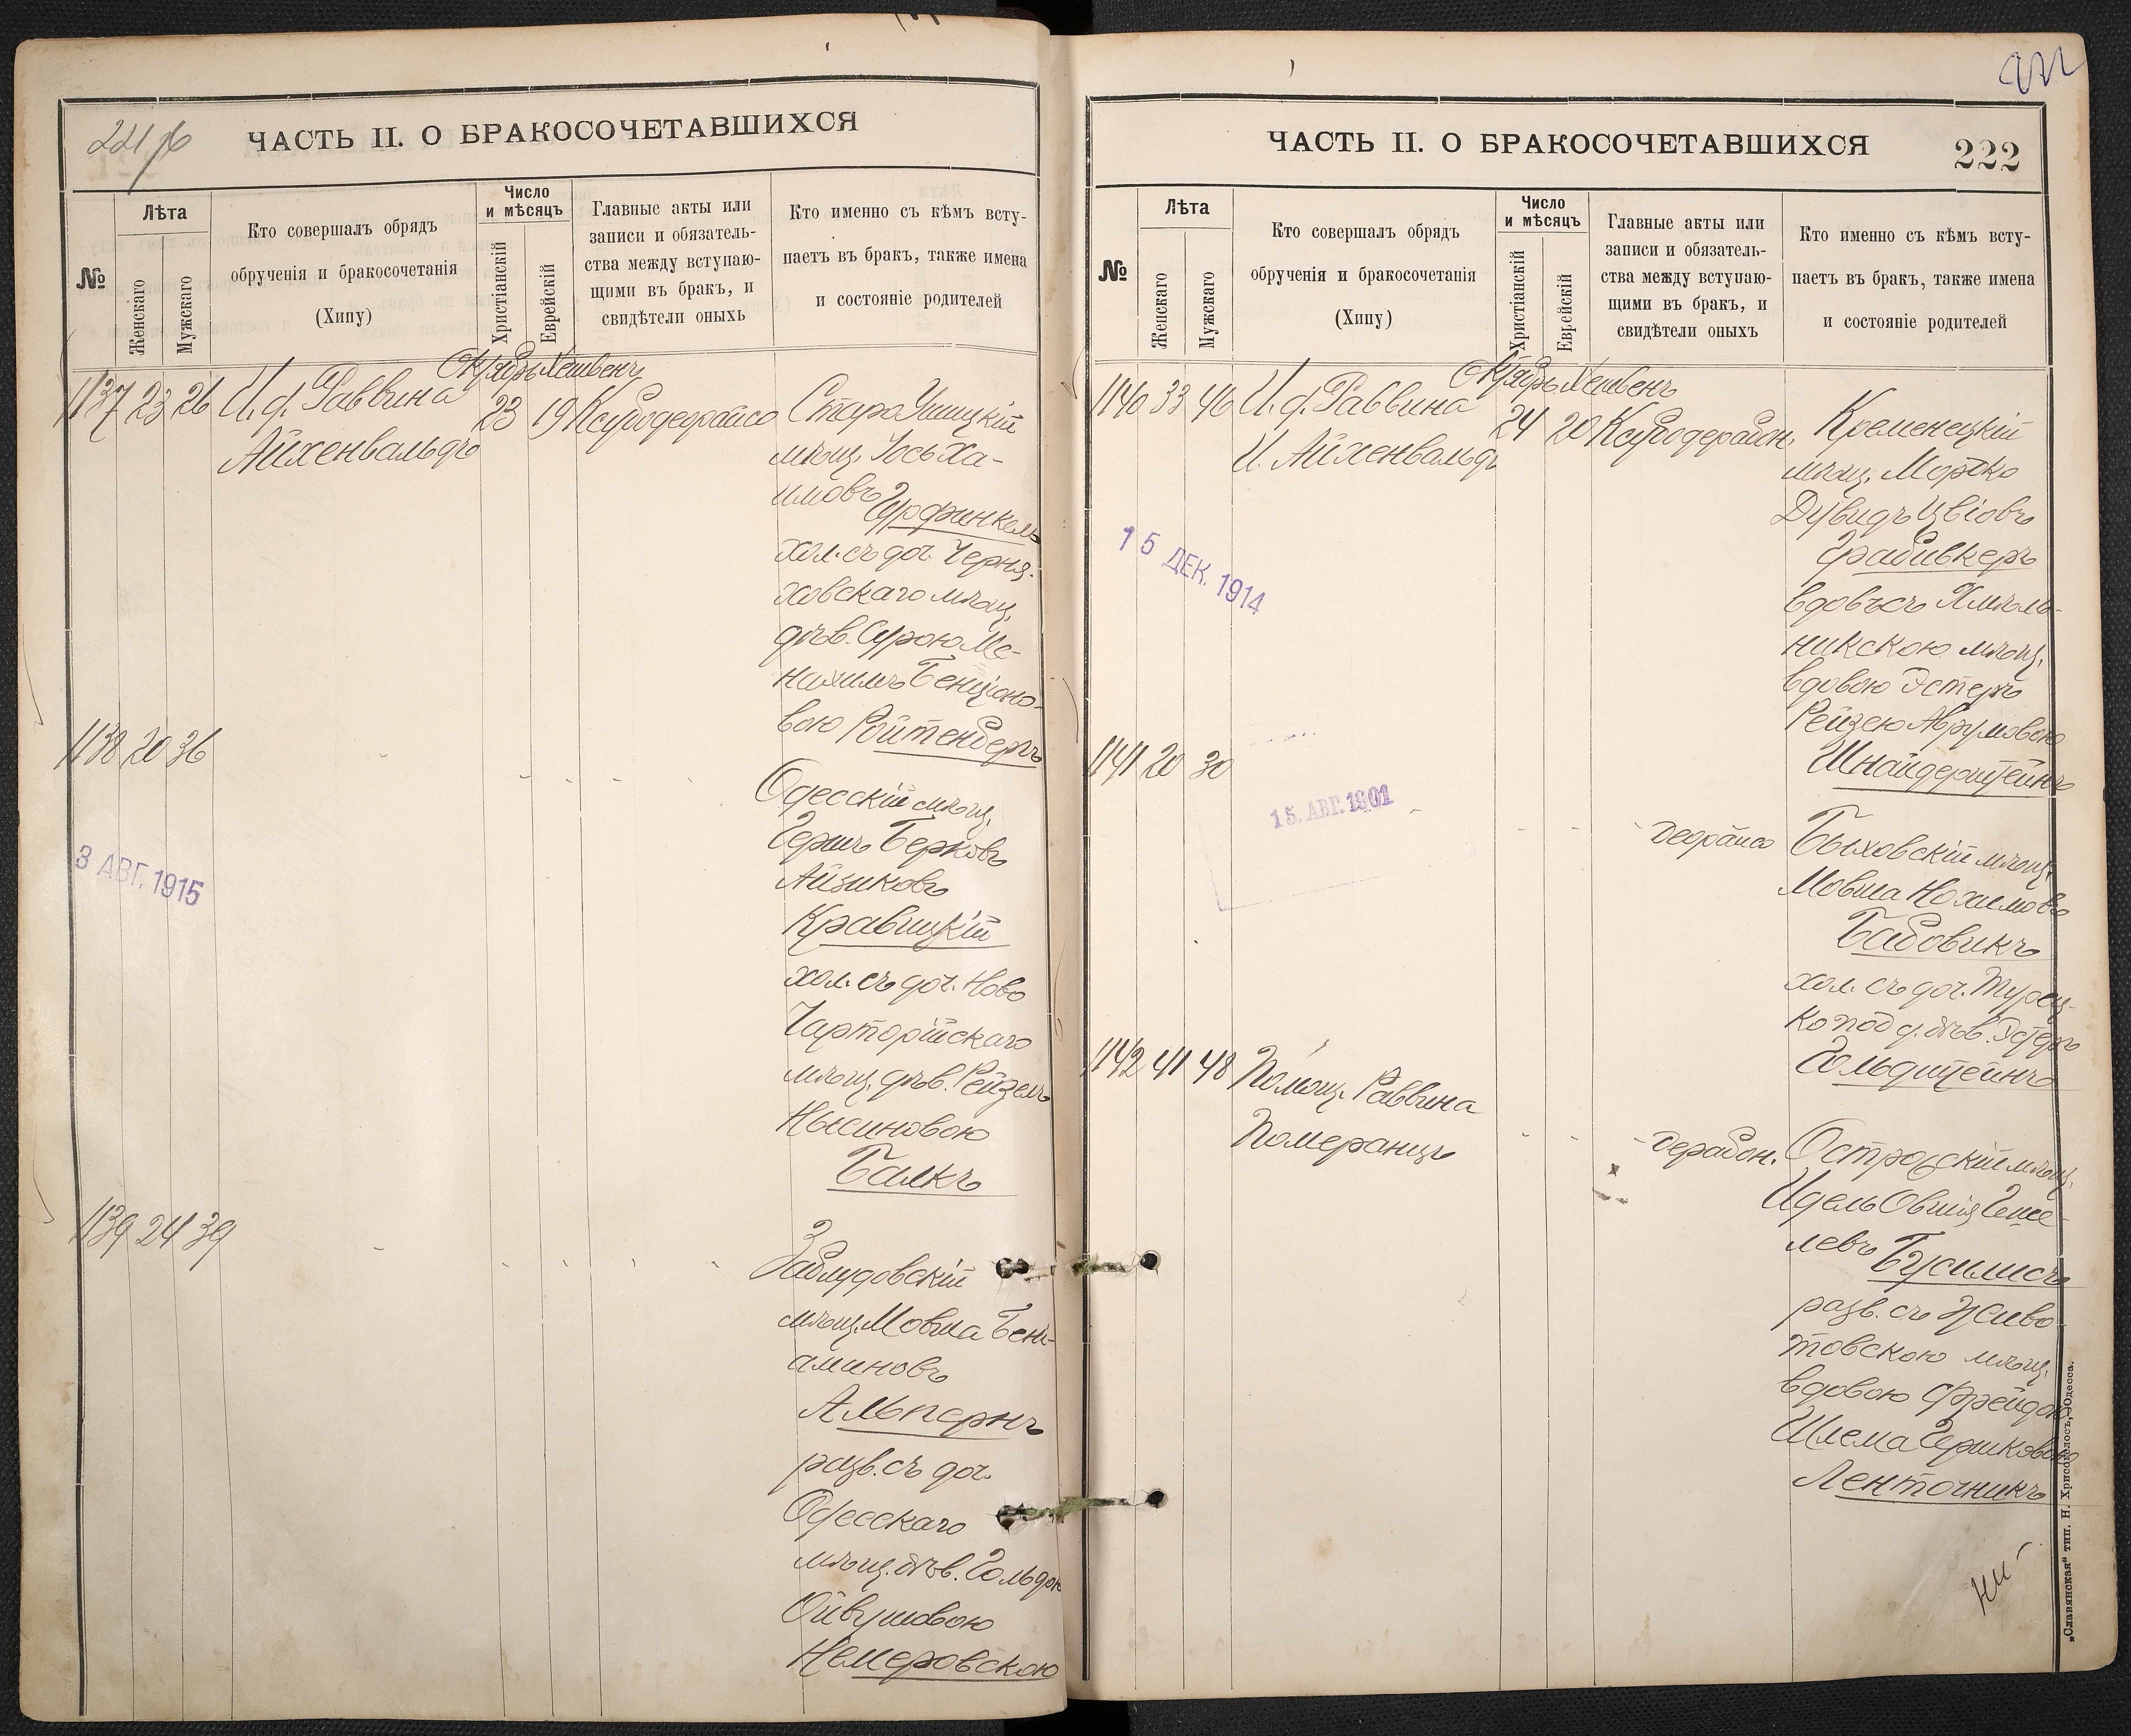 221 об
ЧАСТЬ II. О БРАКОСОЧЕТАВШИХСЯ
№
Лѣта
Женскаго
Мужскаго
Кто совершалъ обрядъ
обрученія и бракосочетанія
(Хипу)
Число
и мѣсяцъ
Христіанскій
Еврейскій
Главные акты или
записи и обязатель-
ства между вступаю-
щими въ бракъ, и
свидѣтели оныхъ
Кто именно съ кѣмъ всту-
паетъ въ бракъ, также имена
и состояніе родителей
Октябрь Хешвенъ
1137 23 26 И. д. Раввина 23 19
Айхенвальдъ
Старо Ушицкій
мѣщ. Іось Ха-
имовъ Гурфинкель
хол. съ доч. Черня-
ховскаго мѣщ.
дѣв. Сурою Ме-
нихимъ Бенціоно-
вою Ройтенбергъ
1138 20 36
Одесскій мѣщ.
Гершъ Берковъ
Айзиковъ
Кравицкій
хол. съ доч. Ново
Чарторійскаго
мѣщ. дѣв. Рейзелъ
Нысиновою
Балкъ
3 АВГ. 1915
1139 24 39
Заблудовскій
мѣщ. Мовша Бені-
аминовъ
Альпернъ
разв. съ доч.
Одесскаго
мѣщ. дѣв. Гольдою
Ойвушовою
Немеровскою
222
ЧАСТЬ II. О БРАКОСОЧЕТАВШИХСЯ
222
№
Лѣта
Женскаго
Мужскаго
Кто совершалъ обрядъ
обрученія и бракосочетанія
(Хипу)
Число
и мѣсяцъ
Христіанскій
Еврейскій
Главные акты или
записи и обязатель-
ства между вступаю-
щими въ бракъ, и
свидѣтели оныхъ
Кто именно съ кѣмъ всту-
паетъ въ бракъ, также имена
и состояніе родителей
Октябрь Хешвенъ
1140 33 46 И. д. Раввина 24 20 Ксубодерабон.
И. Айхенвальдъ
Кременецкій
мѣщ. Мортко
Дувидъ Цвіовъ
Грабивкеръ
вдовъ съ Хмѣль-
никскою мѣщ.
вдовою Эстеръ
Рейзею Абрумовою
Шнайдерштейнъ
15 ДЕК. 1914
1141 20 30
15. АВГ. 1901
Быховскій мѣщ.
Мовша Нохимовъ
Бабовикъ
хол. съ доч. Турец-
ко под. дѣв. Эстеръ
Гольдштейнъ
1142 41 48 Помощ. Раввина
Померанцъ
дерабон.
Острогскій мѣщ.
Идель Овшія Геше-
левъ Бусилисъ
разв. съ Живо-
товскою мѣщ.
вдовою Фрейдою
Шлема Гершковою
Ленточникъ
„Славянская“ тип. Н. Хрисогелосъ, Одесса.